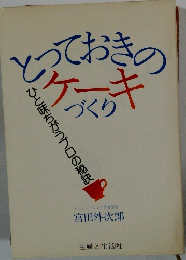 とっておきの
ケーキ
づくり
ひと味ちがうプロの秘訣
宮田外次郎
主婦と生活社